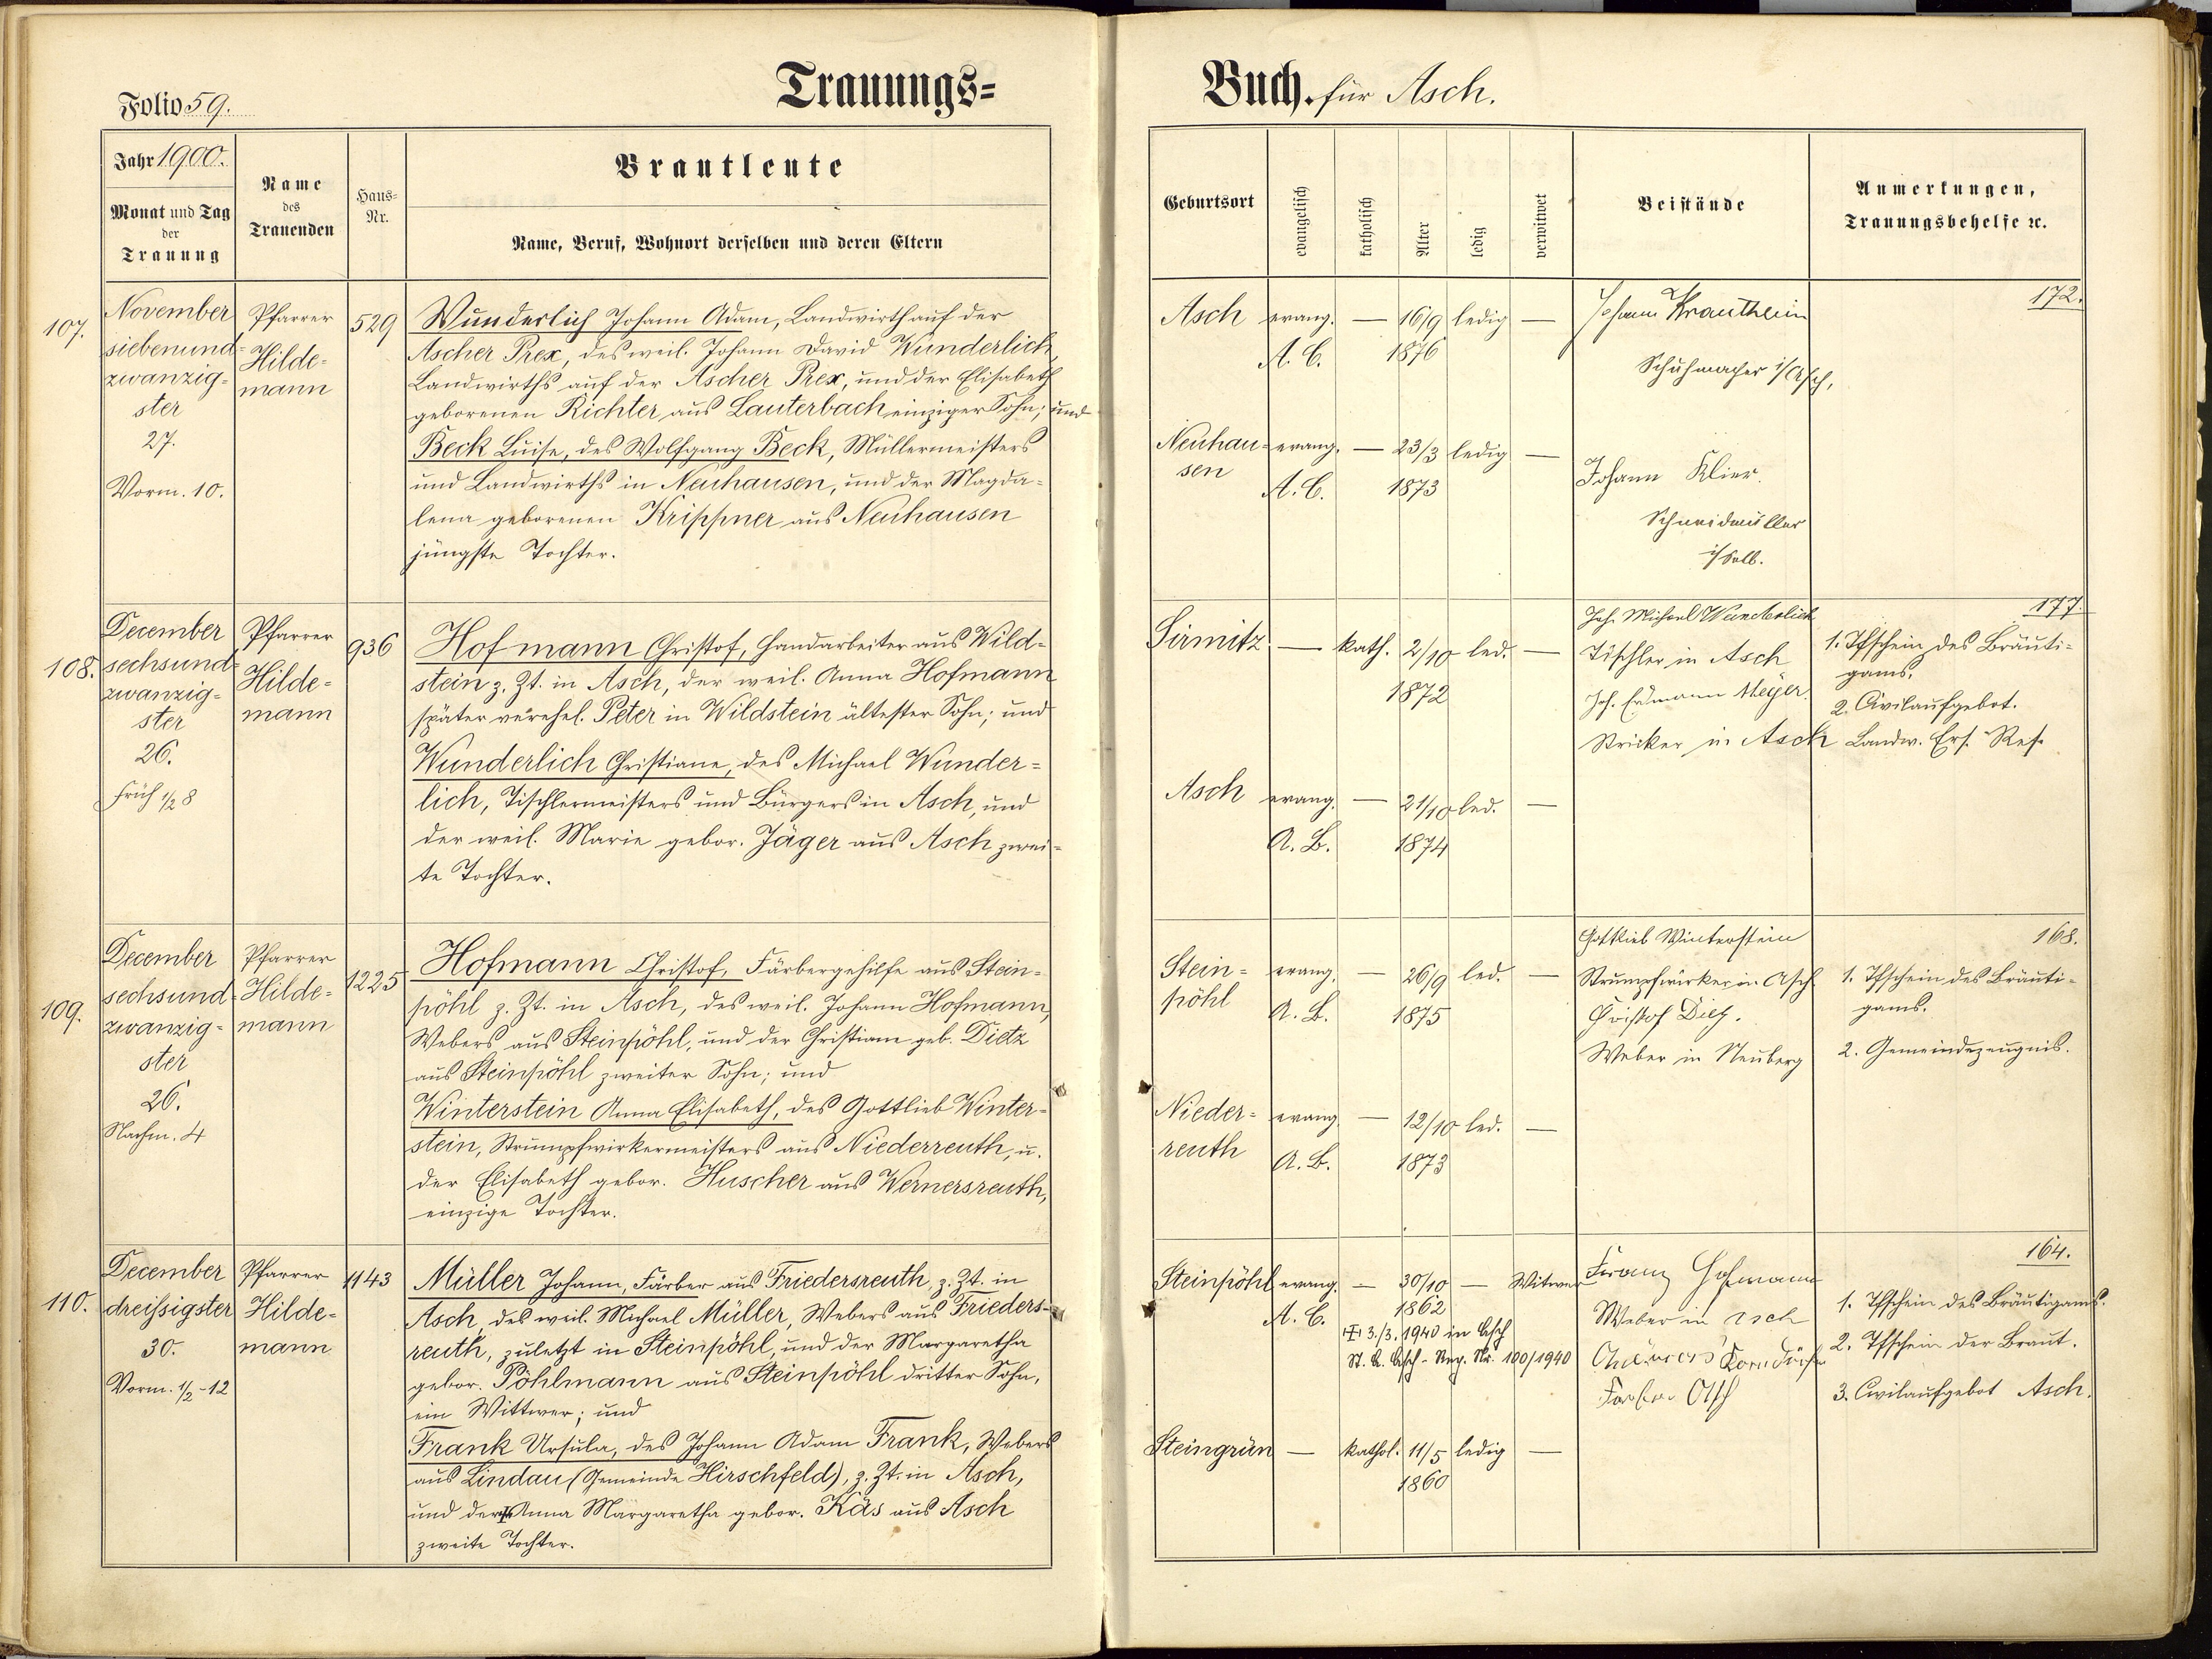 Folio 59.
Trauungs=
Jahr 1900.
Monat und Tag
der
Trauung
Name
des
Trauenden
Haus=
Nr.
Brautleute
Name, Beruf, Wohnort derselben und deren Eltern
107.
November
siebenund=
zwanzig=
ster
27.
Vorm. 10.
Pfarrer
Hilde=
mann
529
Wunderlich Johann Adam, Landwirth auf der
Ascher Prex, des weil. Johann David Wunderlich,
Landwirths auf der Ascher Prex, und der Elisabeth
geborenen Richter aus Lauterbach einziger Sohn; und
Beck Luise, des Wolfgang Beck, Müllermeisters
und Landwirths in Neuhausen, und der Magda=
lena geborenen Krippner aus Neuhausen
jüngste Tochter.
108.
December
sechsund=
zwanzig=
ster
26.
Früh ½ 8
Pfarrer
Hilde=
mann
936
Hofmann Christof, Handarbeiter aus Wild=
stein z. Zt. in Asch, der weil. Anna Hofmann
später verehel. Peter in Wildstein ältester Sohn; und
Wunderlich Christiane, des Michael Wunder=
lich, Tischlermeisters und Bürgers in Asch, und
der weil. Marie gebor. Jäger aus Asch zwei=
te Tochter.
109.
December
sechsund=
zwanzig=
ster
26.
Nachm. 4
Pfarrer
Hilde=
mann
1225
Hofmann Christof, Färbergehilfe aus Stein=
pöhl z. Zt. in Asch, des weil. Johann Hofmann,
Webers aus Steinpöhl, und der Christiane geb. Dietz
aus Steinpöhl zweiter Sohn; und
Winterstein Anna Elisabeth, des Gottlieb Winter=
stein, Strumpfwirkermeisters aus Niederreuth, u.
der Elisabeth gebor. Huscher aus Wernersreuth,
einzige Tochter.
110.
December
dreißigster
30.
Vorm. ½-12
Pfarrer
Hilde=
mann
1143
Müller Johann, Färber aus Friedersreuth, z. Zt. in
Asch, des weil. Michael Müller, Webers aus Frieders=
reuth, zuletzt in Steinpöhl, und der Margaretha
gebor. Pöhlmann aus Steinpöhl dritter Sohn,
ein Wittwer; und
Frank Ursula, des Johann Adam Frank, Webers
aus Lindau (Gemeinde Hirschfeld), z. Zt. in Asch,
und der Anna Margaretha gebor. Käs aus Asch
zweite Tochter.
Buch. für Asch.
Geburtsort
evangelisch
katholisch
Alter
ledig
verwitwet
Beistände
Anmerkungen,
Trauungsbehelfe ꝛc.
Asch evang. — 16/9 ledig —
A. C. 1876
Johann Krautheim
Schuhmacher i/Asch,
172.
Neuhau= evang. — 23/3 ledig —
sen
A. C. 1873
Johann Klier
Schneidmüller
i/Selb.
Sirmitz — kath. 2/10 led. —
1872
Joh. Michael Wunderlich
Tischler in Asch
Joh. Erdmann Meyer
Stricker in Asch
177.
1. Tfschein des Bräuti=
gams.
2. Civilaufgebot.
Landw. Ers. Res.
Asch evang. — 21/10 led. —
A. B. 1874
Stein= evang. — 26/9 led. —
pöhl
A. B. 1875
Gottlieb Winterstein
Strumpfwirker in Asch
Christof Dietz.
Weber in Neuberg
168.
1. Tfschein des Bräuti=
gams.
2. Gemeindezeugnis.
Nieder= evang. — 12/10 led. —
reuth
A. B. 1873
Steinpöhl evang. — 30/10 — Witwer
A. C. 1862
3./3. 1940 in Asch
St. A. Asch - Reg. Nr. 100/1940
Franz Hofmann
Weber in Asch
Färber Asch
164.
1. Tfschein des Bräutigams.
2. Tfschein der Braut.
3. Civilaufgebot Asch.
Steingrün — kathol. 11/5 ledig —
1860